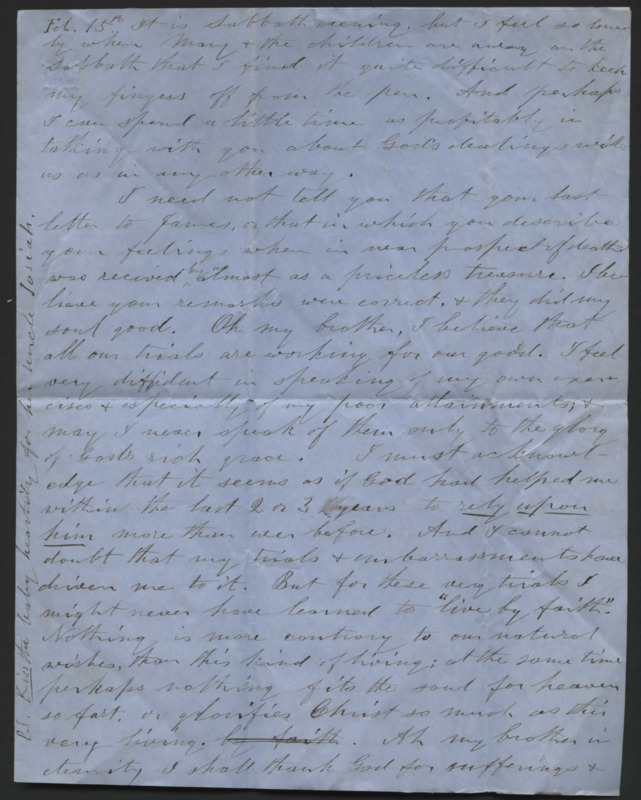 Feb. 15th It is Sabbath evening, but I feel so lone
ly when Mary & the children are away on the
Sabbath that I find it quite difficult to keep
my fingers off from the pen. And perhaps
I can spend a little time as profitably in
talking with you about God's dealings with
us as in any other way.
I need not tell you that your last
letter to James, or that in which you describe
your feelings when in near prospect of death
was recived by us almost as a priceless treasure. I be
lieve your remarks were correct, & they did my
soul good. Oh my brother, I believe that
all our trials are working for our good. I feel
very diffident in speaking of my own exer
cises & especially of my poor attainments; &
may I never speak of them only to the glory
of God's rich grace. I must acknowl-
edge that it seems as if God had helped me
within the last 2 or 3 years to rely upon
him more than ever before. And I cannot
doubt that my trials & embarrassments have
driven me to it. But for these very trials I
might never have learned to "live by faith".
Nothing is more contrary to our natural
wishes, than this kind of living; at the same time
perhaps nothing fits the soul for heaven
so fast, or glorifies Christ so much as this
very living by faith. Ah my brother in
eternity I shall thank God for sufferings &
P.S. Kiss the baby heartily for her uncle Josiah.